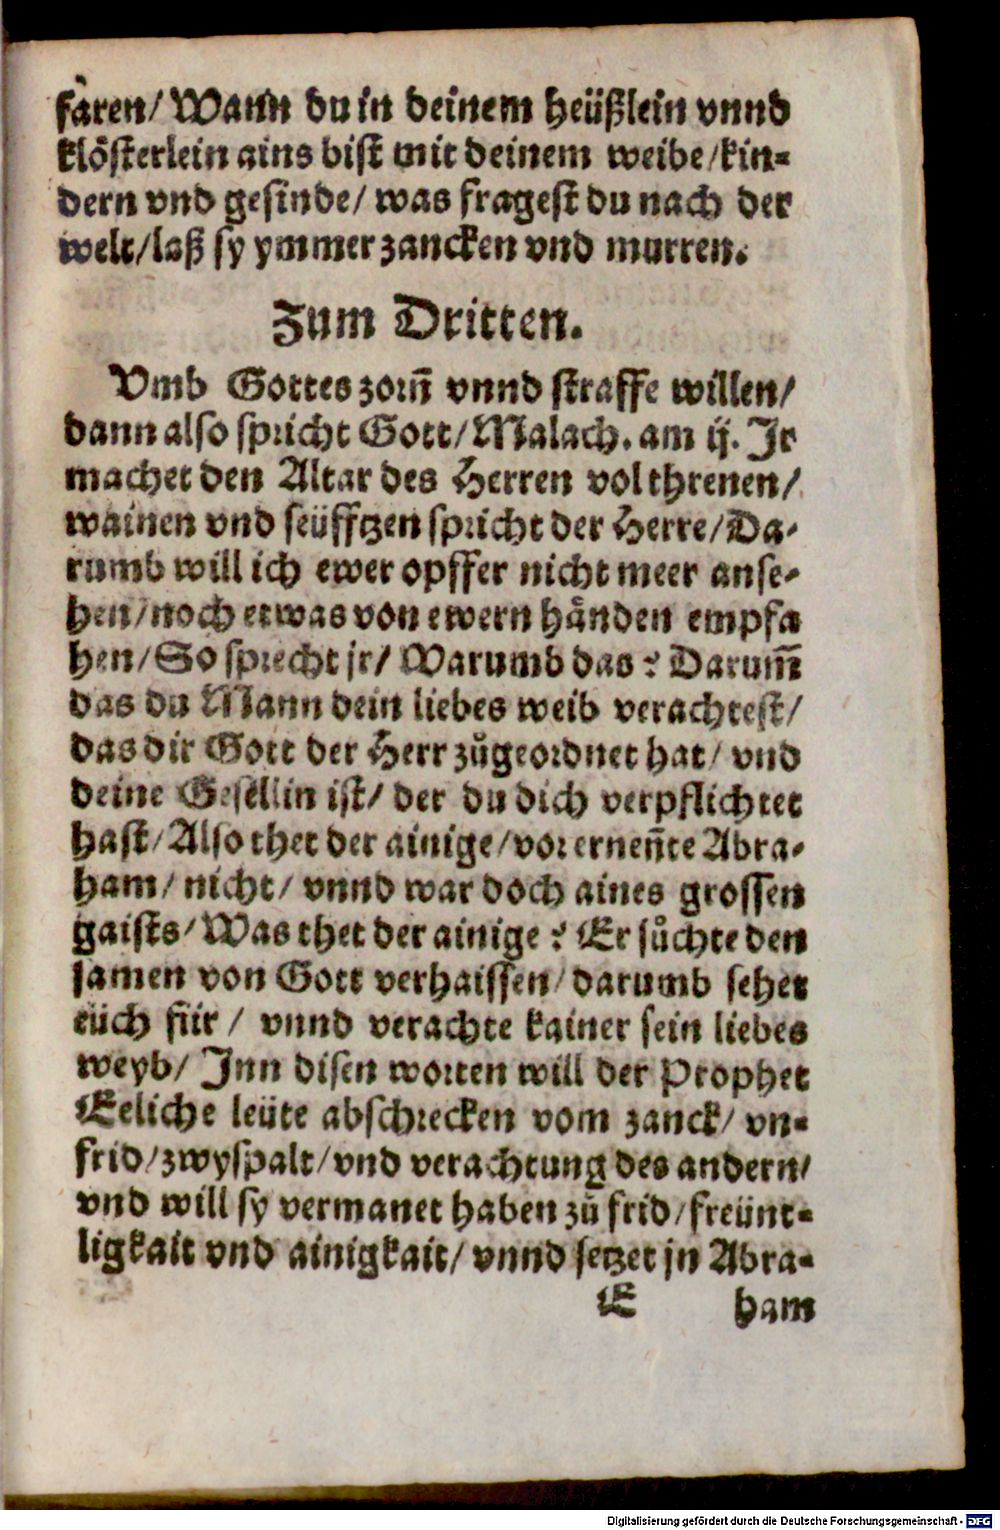 fären/ Wann du in deinem heüßlein vnnd
klösterlein ains bist mit deinem weibe/kin-
dern vnd gesinde/ was fragest du nach der
welt/laß sy ymmer zancken vnd murren.
Zum Dritten.
Vmb Gottes zorñ vnnd straffe willen/
dann also spricht Gott/Malach. am ij. Jr
machet den Altar des Herren vol threnen/
wainen vnd seüfftzen spricht der Herre/Da-
rumb will ich ewer opffer nicht meer anse-
hen/noch etwas von ewern hånden empfa
hen/So sprecht jr/ Warumb das? Darum̃
das du Mann dein liebes weib verachtest/
das dir Gott der Herr zůgeordnet hat/ vnd
deine Gesellin ist/ der du dich verpflichtet
hast/Also thet der ainige/vor ernen̄te Abra-
ham/ nicht/ vnnd war doch aines grossen
gaists/Was thet der ainige? Er sůchte den
samen von Gott verhaissen/darumb sehet
eüch für/ vnnd verachte kainer sein liebes
weyb/ Jnn disen worten will der Prophet
Eeliche leüte abschrecken vom zanck/ vn-
frid/zwyspalt/vnd verachtung des andern/
vnd will sy vermanet haben zů frid/freünt-
ligkait vnd ainigkait/ vnnd setzet jn Abra-
E ham
Digitalisierung gefördert durch die Deutsche Forschungsgemeinschaft - DFG